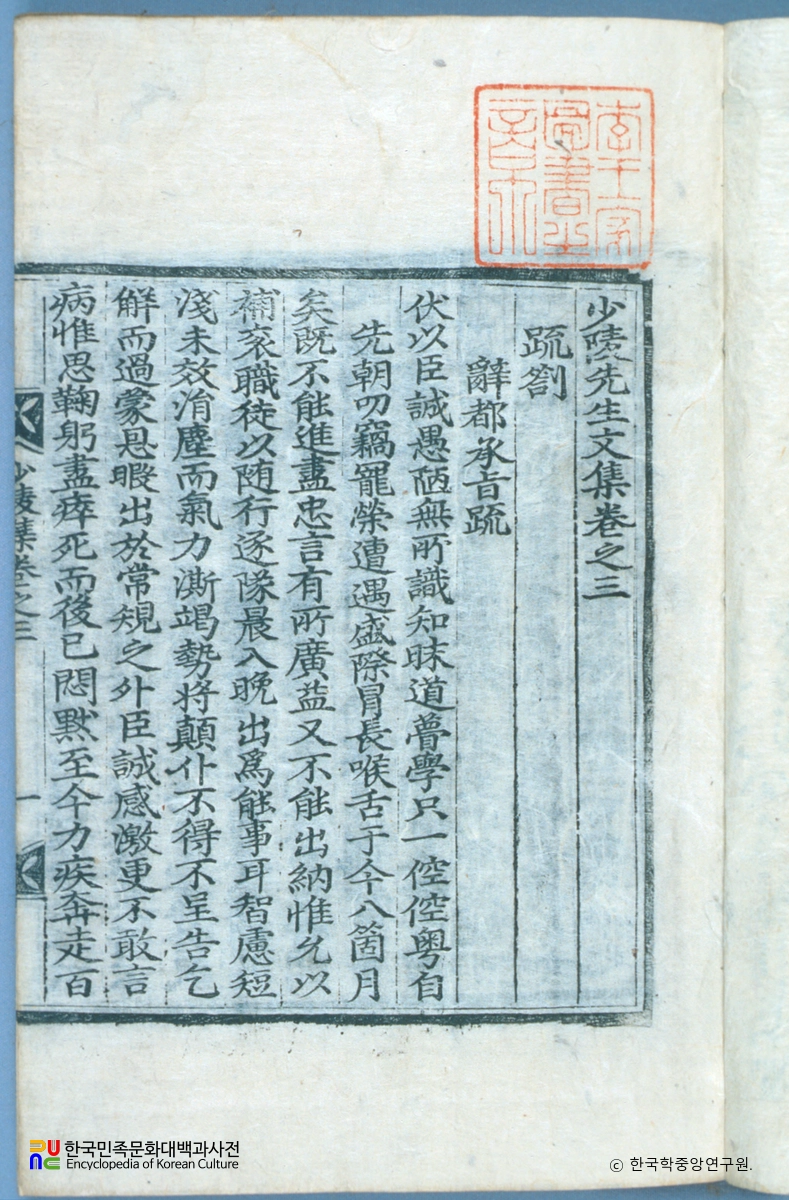 李王家
圖書之
章
少陵先生文集卷之三
疏劄
辭都承旨疏
伏以臣誠愚陋無所識知昧道瞢學只一倥倥粤自
先朝叨竊寵榮遭遇盛際冒長喉舌于今八箇月
矣旣不能進盡忠言有所廣益又不能出納惟允以
補衮職徒以随行逐隊晨入晩出爲能事耳智慮短
淺未效涓塵而氣力澌竭勢將顚仆不得不呈告乞
觧而過蒙恩暇出於常規之外臣誠感激更不敢言
病惟思鞠躬盡瘁死而後已悶黙至今力疾奔走百
少陵集卷之三
一
한국민족문화대백과사전
Encyclopedia of Korean Culture
© 한국학중앙연구원.